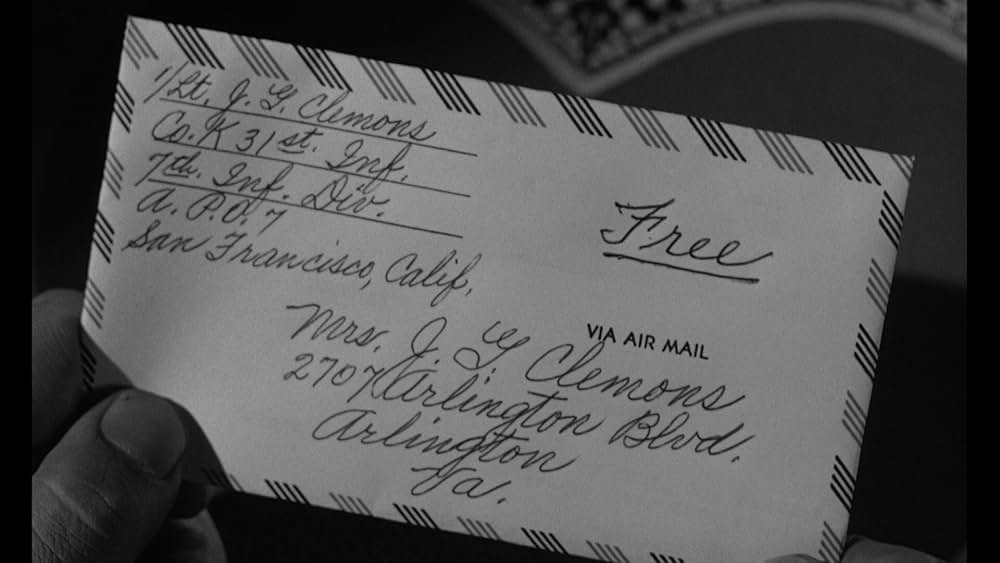 1/Lt. J. G. Clemons
Co. K 31st. Inf.
7th. Inf. Div.
A. P.O. 7
San Francisco, Calif.
Free
VIA AIR MAIL
Mrs. J. G. Clemons
2707 Arlington Blvd.
Arlington
Va.